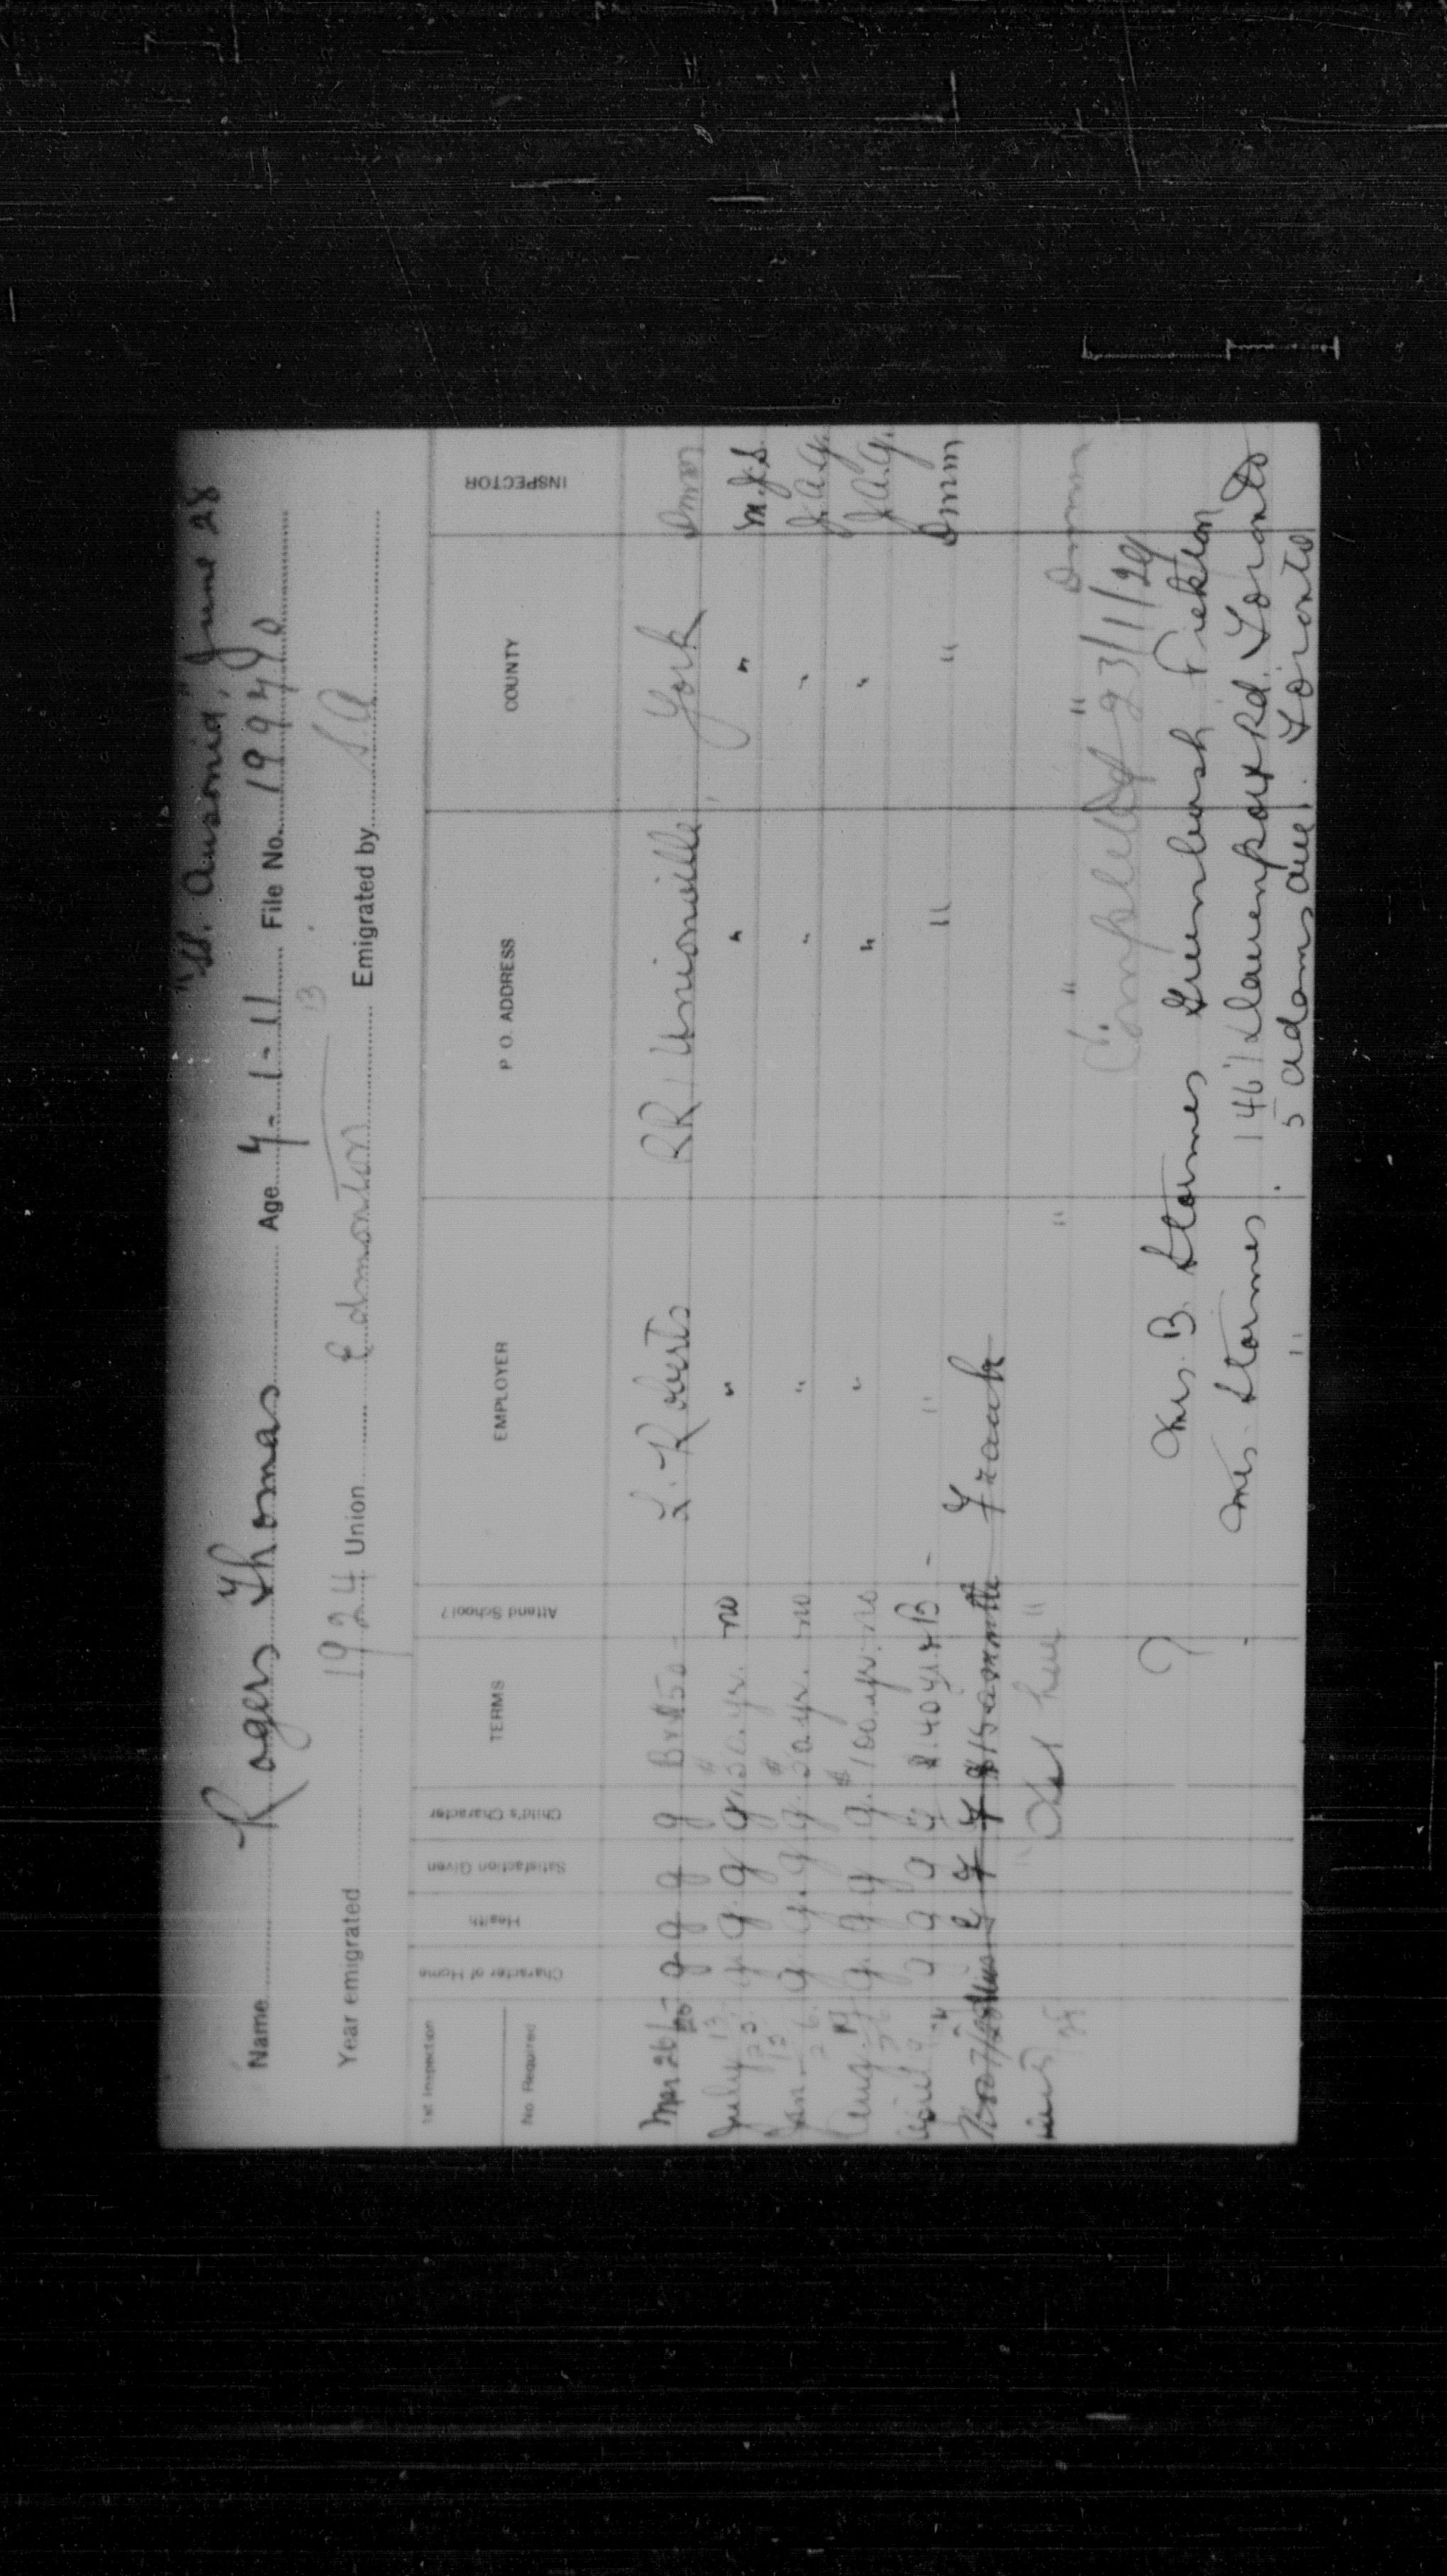 "SS. Ausonia," June 28
Name Rogers Thomas Age 7-1-11 File No.
13
Year emigrated 1924 Union Edmonton Emigrated by S.A
1st Inspection
No. Required
Character of Home
Health
Satisfaction Given
Child's Character
TERMS
Attend School?
EMPLOYER
P O. ADDRESS
COUNTY
INSPECTOR
Mar 26 g g g g B+$50 - L. Roberts RR1 Unionville, York Dmm
July 13 25 g. g. g $50.yr. no " " " M.J.S.
Jan. 12 26. g. g. g. g. $50.yr. no " " " J.A.G.
Aug. g. g. g g. $100.yr. no " " " J.A.G.
g g g g $140 yr. + B - " " " Dmm
$15 a month
" " " Dmm
Completed 23/1/29
? Mrs. B. Stormes Greenbush
Mrs. Stormes 1461 Davenport Rd. Toronto
" 5 Adams ave. Toronto